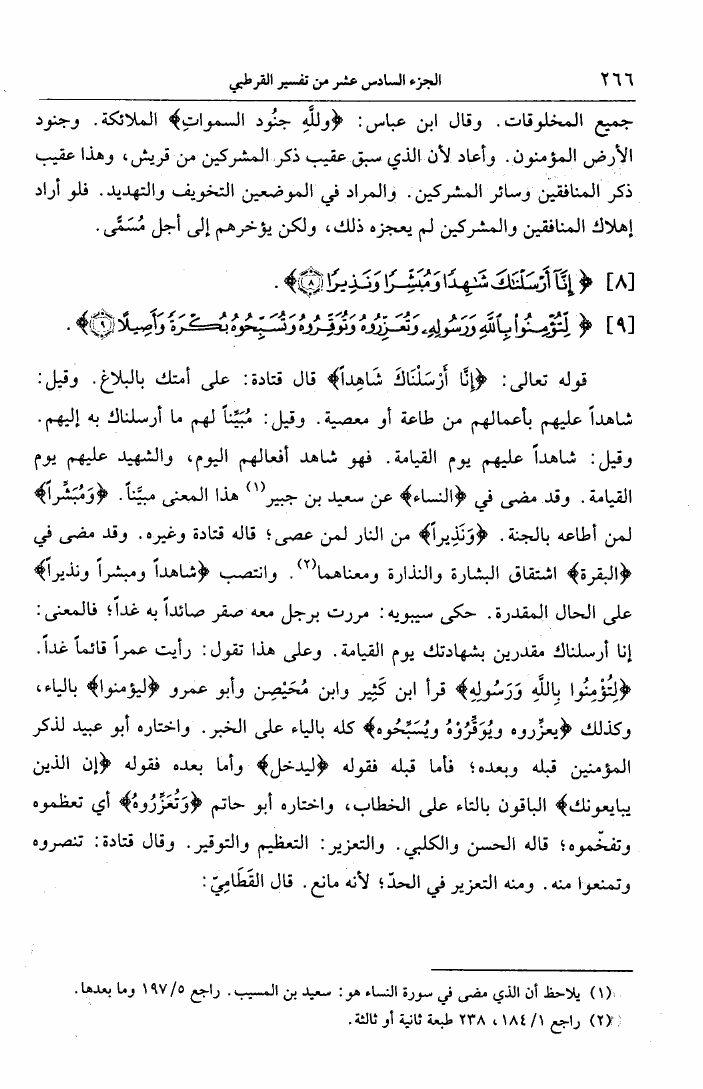 ٢٦٦ الجزء السادس عشر من تفسير القرطبي
جميع المخلوقات. وقال ابن عباس: ﴿وللَّهِ جنُود السموات﴾ الملائكة. وجنود
الأرض المؤمنون. وأعاد لأن الذي سبق عقيب ذكر المشركين من قريش، وهذا عقيب
ذكر المنافقين وسائر المشركين. والمراد في الموضعين التخويف والتهديد. فلو أراد
إهلاك المنافقين والمشركين لم يعجزه ذلك، ولكن يؤخرهم إلى أجل مُسَمًّى.
[٨] ﴿إِنَّآ أَرْسَلْنَٰكَ شَٰهِدًا وَمُبَشِّرًا وَنَذِيرًا ۝٨﴾.
[٩] ﴿لِّتُؤْمِنُوا۟ بِٱللَّهِ وَرَسُولِهِۦ وَتُعَزِّرُوهُ وَتُوَقِّرُوهُ وَتُسَبِّحُوهُ بُكْرَةً وَأَصِيلًا ۝٩﴾.
قوله تعالى: ﴿إِنَّا أَرْسَلْنَاكَ شَاهِداً﴾ قال قتادة: على أمتك بالبلاغ. وقيل:
شاهداً عليهم بأعمالهم من طاعة أو معصية. وقيل: مُبَيِّناً لهم ما أرسلناك به إليهم.
وقيل: شاهداً عليهم يوم القيامة. فهو شاهد أفعالهم اليوم، والشهيد عليهم يوم
القيامة. وقد مضى في ﴿النساء﴾ عن سعيد بن جبير(١) هذا المعنى مبيَّناً. ﴿وَمُبَشِّراً﴾
لمن أطاعه بالجنة. ﴿وَنَذِيراً﴾ من النار لمن عصى؛ قاله قتادة وغيره. وقد مضى في
﴿البقرة﴾ اشتقاق البشارة والنذارة ومعناهما(٢). وانتصب ﴿شاهداً ومبشراً ونذيراً﴾
على الحال المقدرة. حكى سيبويه: مررت برجل معه صقر صائداً به غداً؛ فالمعنى:
إنا أرسلناك مقدرين بشهادتك يوم القيامة. وعلى هذا تقول: رأيت عمراً قائماً غداً.
﴿لِتُؤْمِنُوا بِاللَّهِ وَرَسُولِهِ﴾ قرأ ابن كَثِير وابن مُحَيْصِن وأبو عمرو ﴿ليؤمنوا﴾ بالياء،
وكذلك ﴿يعزّروه ويُوَقِّرُوْهُ ويُسَبِّحُوه﴾ كله بالياء على الخبر. واختاره أبو عبيد لذكر
المؤمنين قبله وبعده؛ فأما قبله فقوله ﴿ليدخل﴾ وأما بعده فقوله ﴿إن الذين
يبايعونك﴾ الباقون بالتاء على الخطاب، واختاره أبو حاتم ﴿وَتُعَزِّرُوهُ﴾ أي تعظموه
وتفخّموه؛ قاله الحسن والكلبي. والتعزير: التعظيم والتوقير. وقال قتادة: تنصروه
وتمنعوا منه. ومنه التعزير في الحدّ؛ لأنه مانع. قال القَطَامِيّ:
(١) يلاحظ أن الذي مضى في سورة النساء هو: سعيد بن المسيب. راجع ١٩٧/٥ وما بعدها.
(٢) راجع ١٨٤/١، ٢٣٨ طبعة ثانية أو ثالثة.